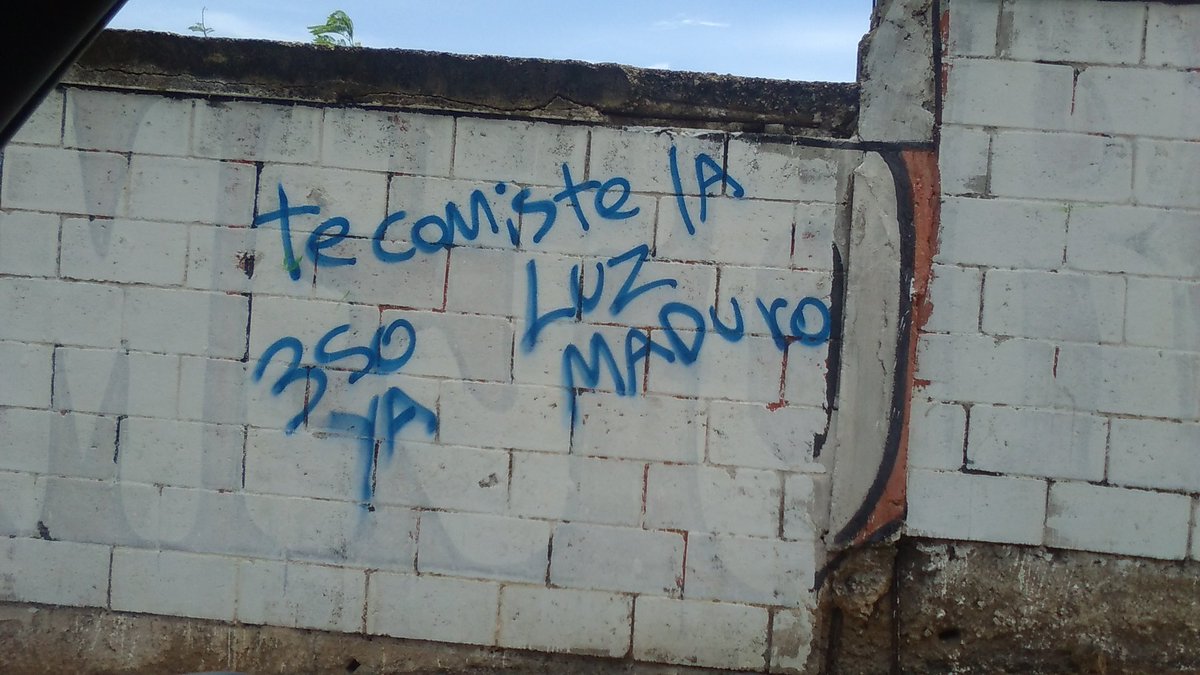 te comiste lA
LUZ
MADURO
350
YA